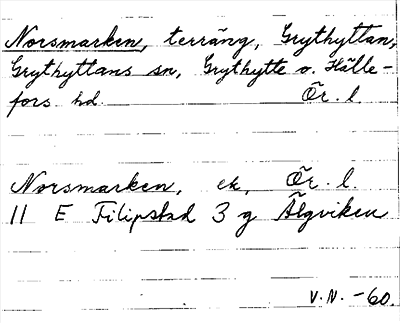 Norsmarken, terräng, Grythyttan,
Grythyttans sn, Grythytte o. Hälle-
fors hd. Ör. l
Norsmarken, ek, Ör. l.
11 E Filipstad 3 g Älgviken
V.N. -60.